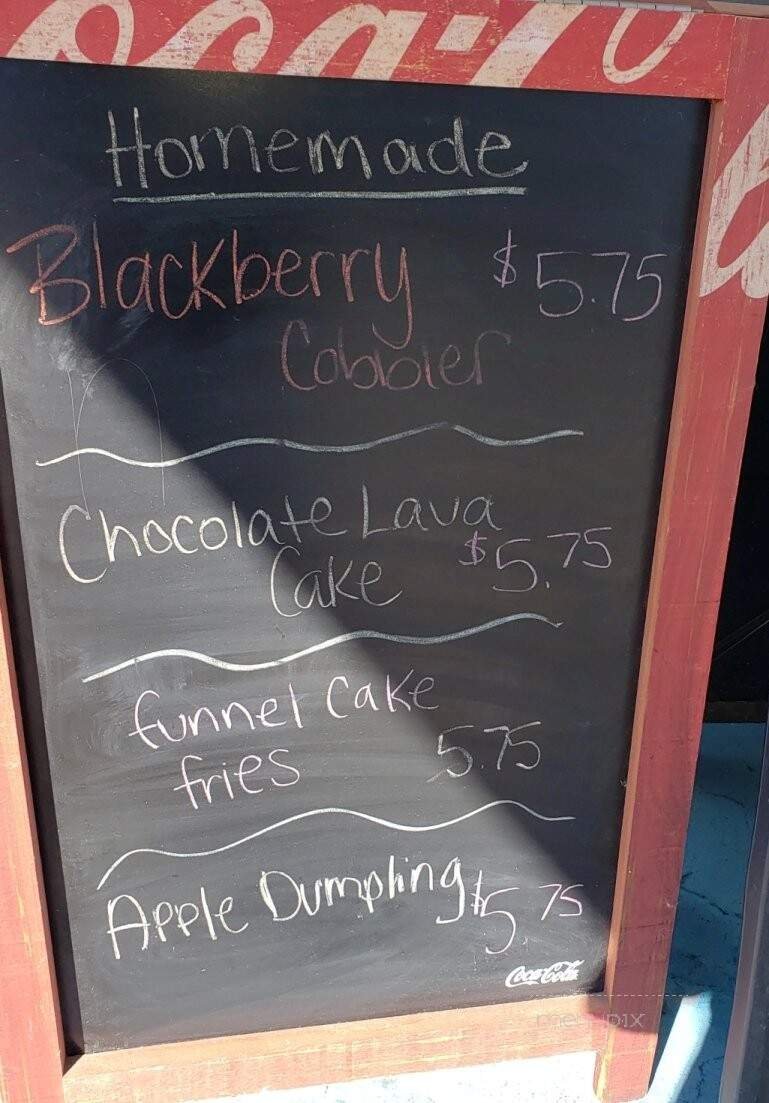 Homemade
Blackberry $5.75
Cobbler
Chocolate Lava
Cake $5.75
funnel Cake
fries 5.75
Apple Dumpling $5 75
Coca-Cola